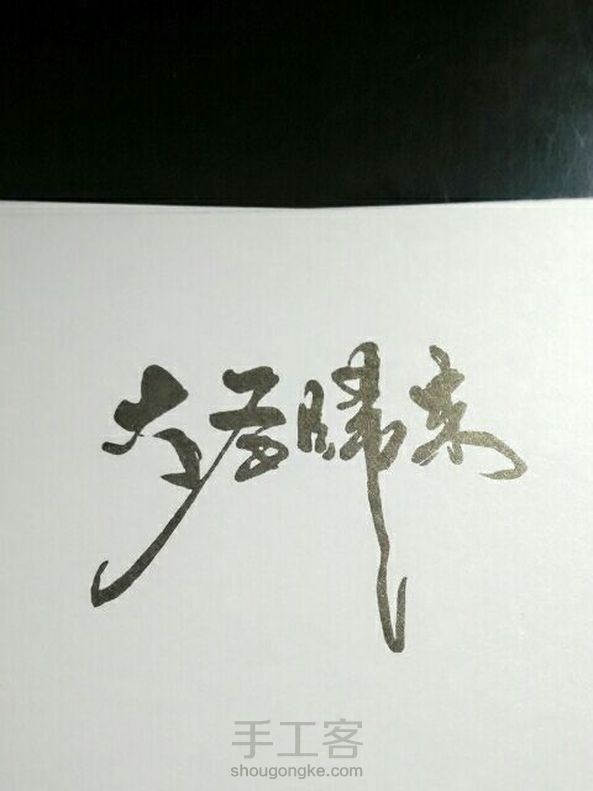 歸来
手工客
shougongke.com